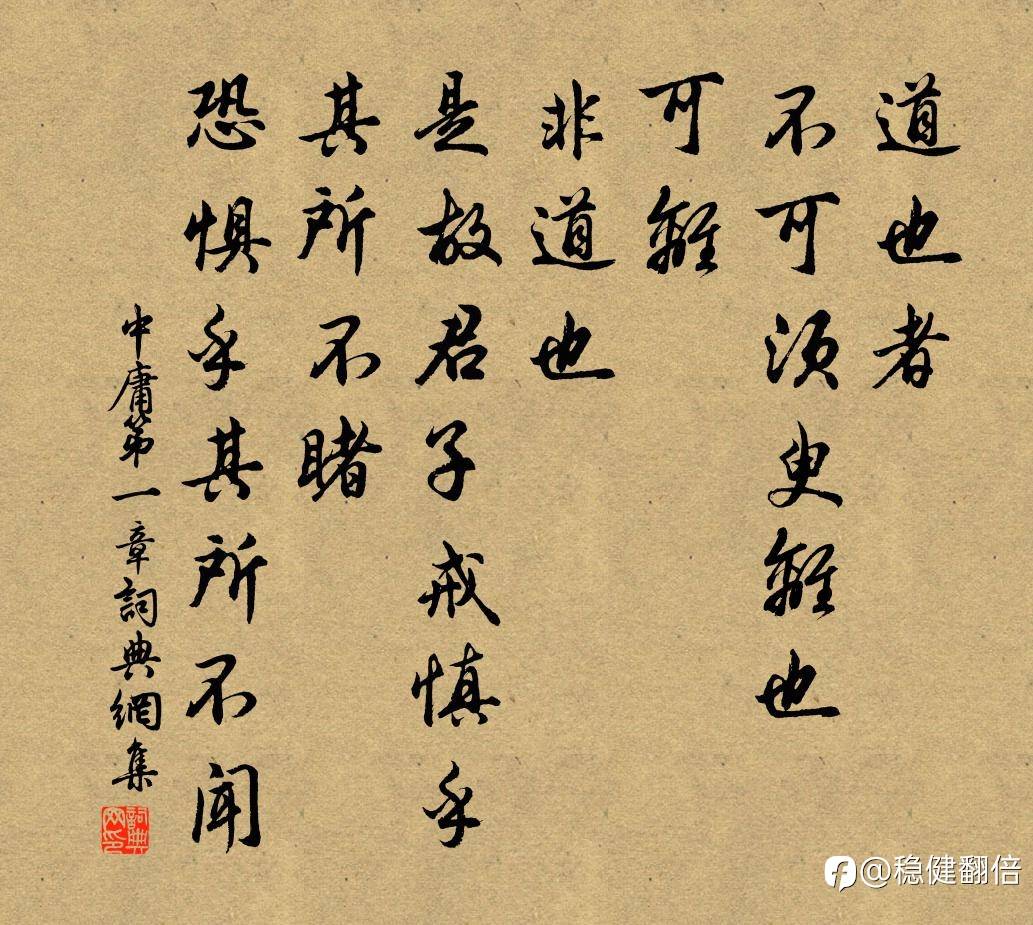 道也者
不可須臾離也
可離
非道也
是故君子戒慎乎
其所不睹
恐懼乎其所不聞
中庸第一章詞典網集
詞典网印
@稳健翻倍